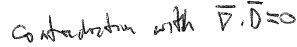 contradiction with ∇̅.D̅=0